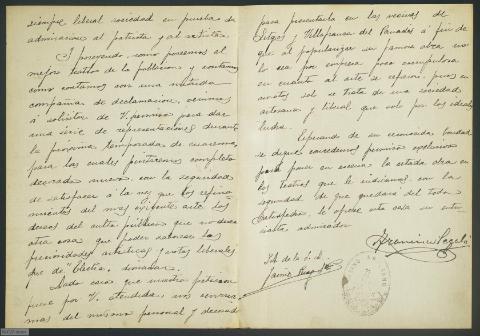 siempre liberal sociedad en prueba de
admiracion al patriota y al artista.
Y poseyendo, como poseemos el
mejor teatro de la poblacion y contando
como contamos con una nutrida
compañia de declamacion, venimos
á solicitar de V. permiso para dar
una série de representaciones durante
la proxima temporada de cuaresma,
para las cuales pintaremos completo
decorado nuevo, con la seguridad
de satisfacer á la vez que los refina
mientos del mas exigente arte los
deseos del culto público que no desea
otra cosa que poder saborear las
preciosidades artísticas y notas liberales
que de "Electra" dimanan.
Dado caso que nuestra peticion
fuese por V. atendida, nos
mos del mismo personal y decorado
para presentarla en las vecinas de
Sitges y Villafranca del Panadés á fin de
que al popularizar su famosa obra no
lo sea por empresa poco escrupulosa
en cuanto al arte se refiere, pues en
nosotros solo se trata de una sociedad
artesana y liberal que solo por los ideales
lucha.
Esperando de su reconocida bondad
se digne concedernos permiso exclusivo
para poner en escena la citada obra en
los teatros que le indicamos con la
seguridad de que quedará del todo
satisfecho, le ofrece esta casa su entu
siasta admirador
de la
Jaime